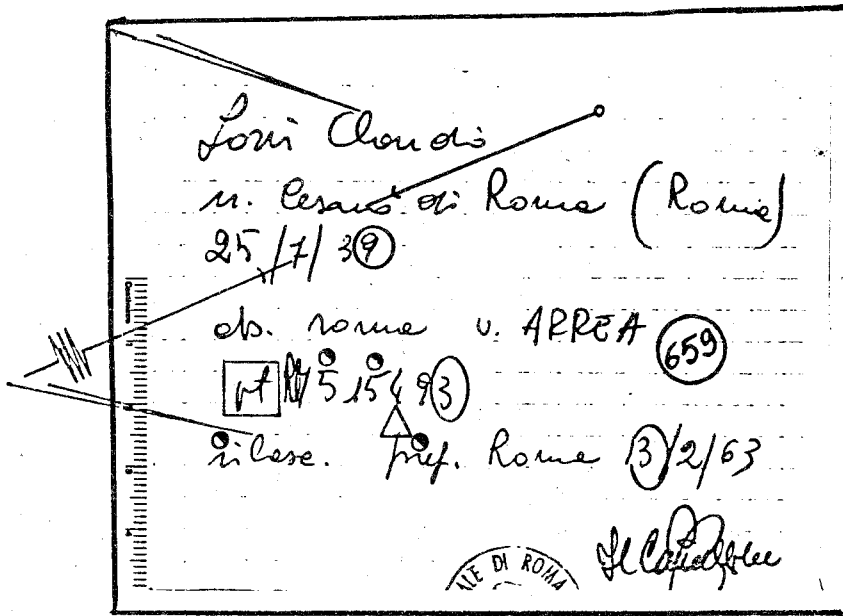 Claudio
n. Cesano di Roma (Roma)
25/7/39
ab. roma v. ARREA 659
pt RM 515493
rilasc. pref. Roma 3/2/63
ALE DI ROMA